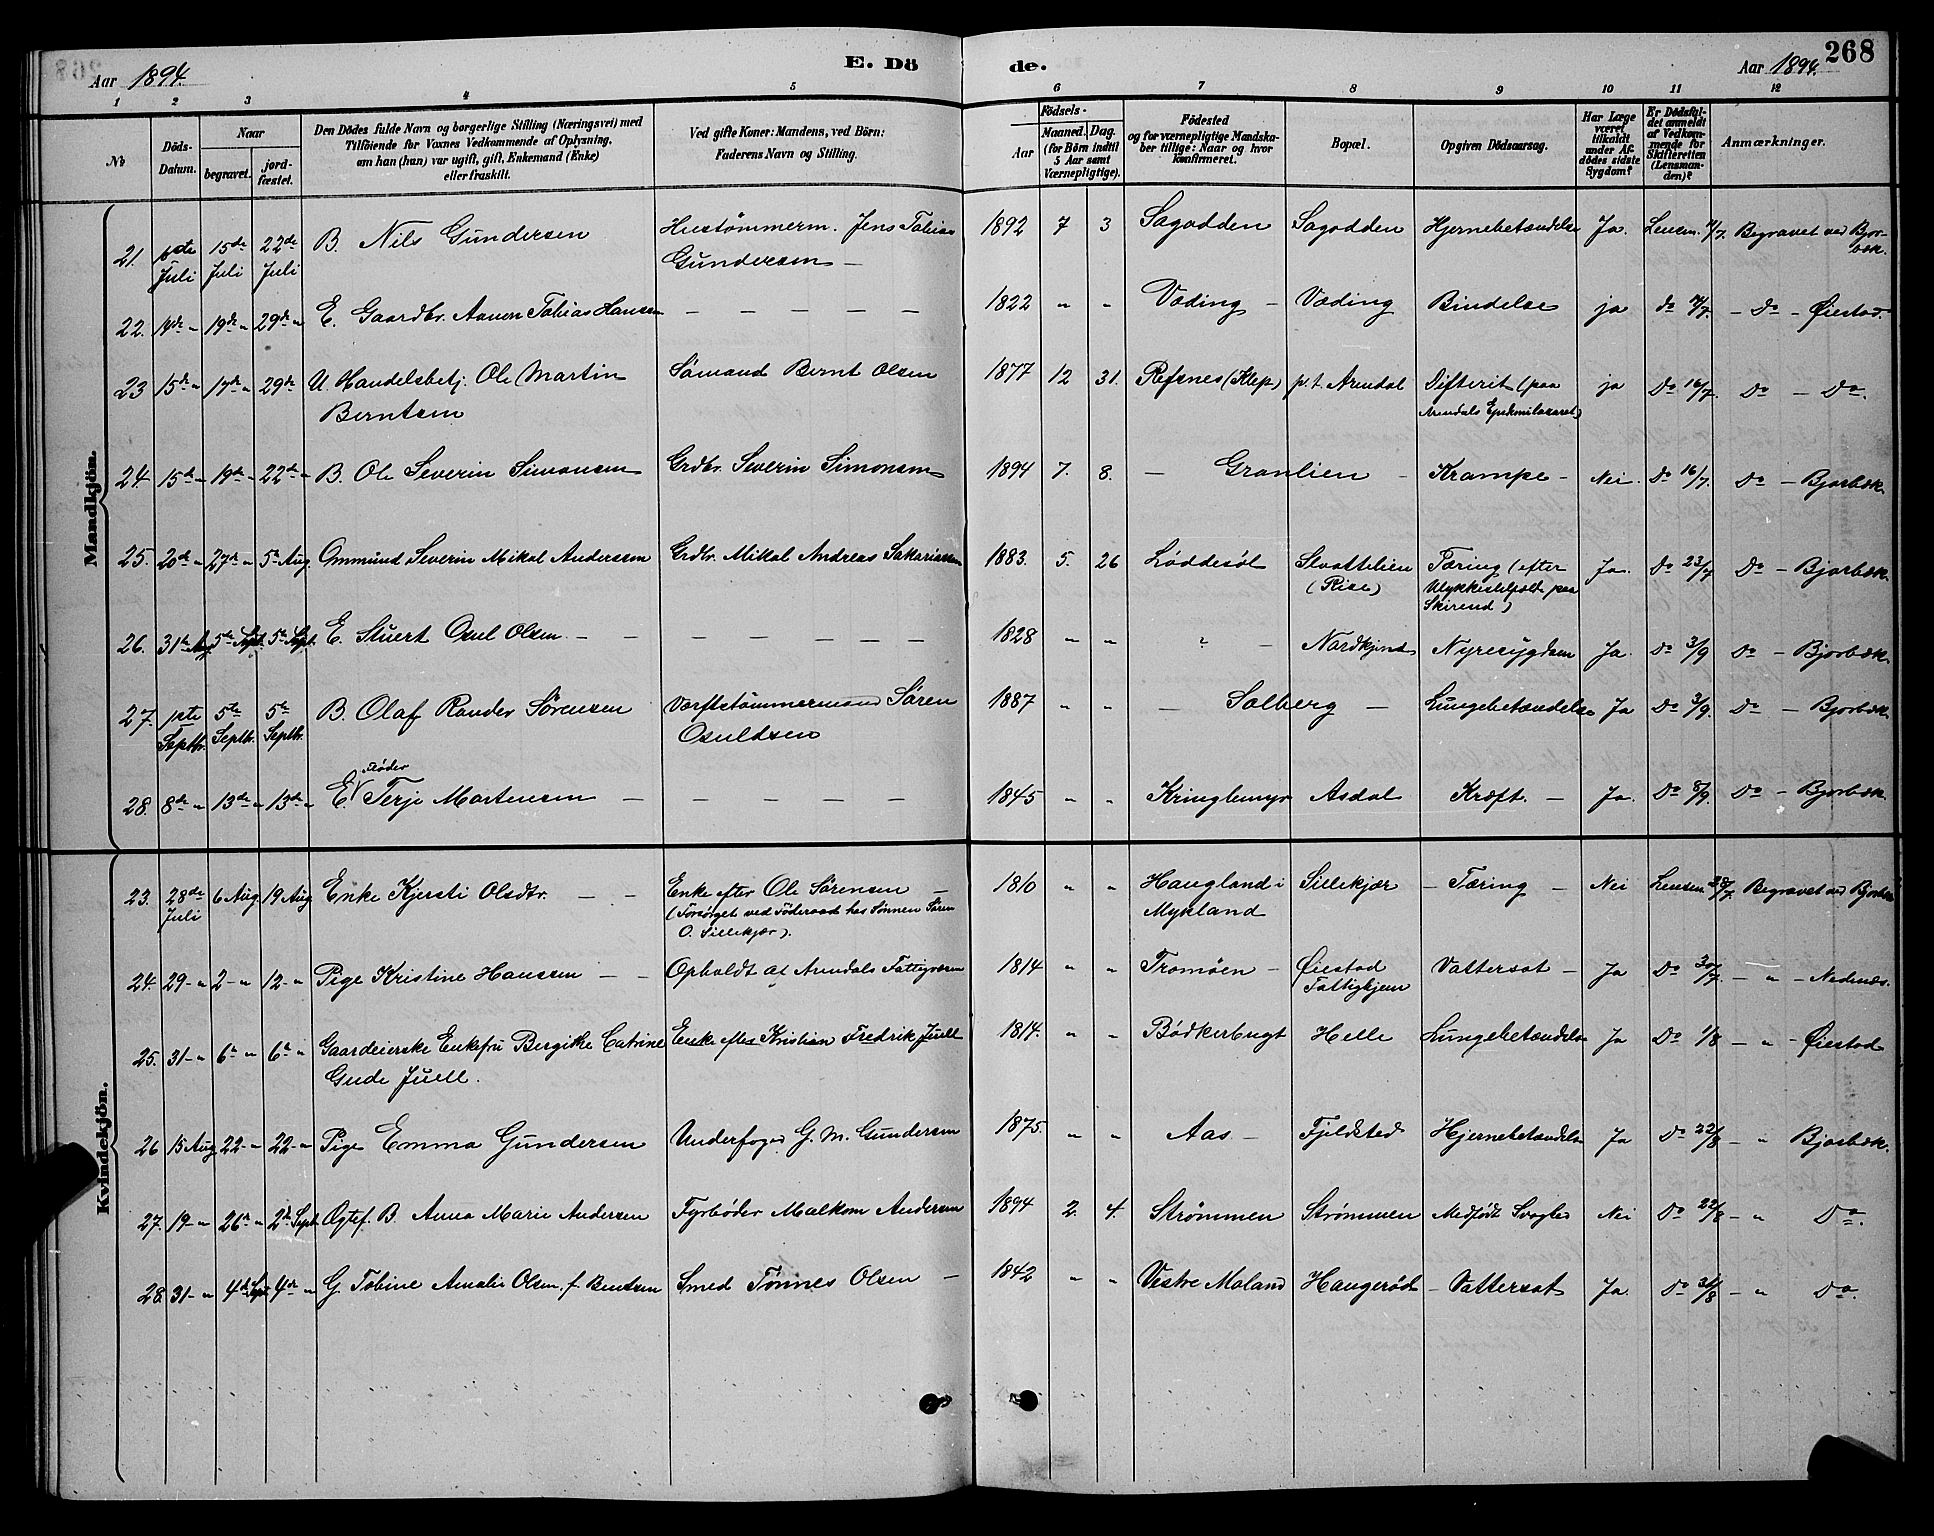 268
Aar 1894.
E. Dö
de.
Aar 1894.
1 2 3 4 5 6 7 8 9 10 11 12
No
Döds-Datum.
Naar
begravet.
jord-fæstet.
Den Dödes fulde Navn og borgerlige Stilling (Næringsvei) med
Tilföiende for Voxnes Vedkommende af Oplysning,
om han (hun) var ugift, gift, Enkemand (Enke)
eller fraskilt.
Ved gifte Koner: Mandens, ved Börn:
Faderens Navn og Stilling.
Födsels-
Aar
Maaned. Dag.
(for Börn indtil
5 Aar samt
Værnepligtige).
Födested
og for værnepligtige Mandska-
ber tillige: Naar og hvor
konfirmeret.
Bopæl.
Opgiven Dödsaarsag.
Har Læge
været
tilkaldt
under Af-
dødes sidste
Sygdom?
Er Dödsfal-
det anmeldt
af Vedkom-
mende for
Skifteretten
(Lensman-
den)?
Anmærkninger.
Mandkjön.
21. 1ste Juli 15de Juli 22de Juli B. Nils Gundersen Hustømmerm. Jens Tobias Gundersen — 1892 7 3 Sagodden Sagodden Hjernebetændelse Ja. Lensm. Begravet ved Bjorbæk.
22. 19de " 29de " E. Gaardbr. Aanen Tobias Hansen — — — — — 1822 " " Væding — Væding Bindelse ja do — Do — Øiestad.
23 15de " 17de " 29de U. Handelsbetj. Ole Martin Berntsen Sømand Bernt Olsen 1877 12 31. Refsnes (Klep) p.t. Arendal Difterit (paa Arendals Epidemilazaret) ja Do 16/7. Do — Do.
24. 15de " 19de " 22de " B. Ole Severin Simonsen Grdbr. Severin Simonsen 1894 7. 8. — Granlien — Krampe — Nei. Do 16/7. Do — Bjorbæk.
25. 20de " 27de " 5te Aug Ommund Severin Mikal Anderssen Grdbr. Mikal Andreas Sakariassen 1883. 5. 26 Løddesøl Slvattelien (Rise) Tæring (efter Ulykkestilfælde paa Skirend) Ja. Do 23/7 Do — Bjorbæk.
26. 31te Aug 5te Sept. 5te Sept. E. Stuert Osul Olsen — — — — — — — 1828 " " ? — Nordkjend Nyresygdom Ja. Do 3/9 Do — Bjorbæk.
27. 1ste Septbr. 5te Septbr. 5te Septbr. B. Olaf Rander Sørensen Værftstømmermand Søren Osuldsen 1887 " " — Solberg — Lungebetændelse Ja Do 3/9. Do — Bjorbæk
28. 8de " 13de " 13de " E. Fløder Terje Mortensen — — — — — — 1845 " " Kringlemyr Asdal Kræft. — Ja. Do 8/9. Do — Bjorbæk
Kvindekjön.
23. 28de Juli 6 Aug. 19 Aug Enke Kjersti Olsdtr. — — Enke efter Ole Sørensen — (Forsørget ved Føderaad hos Sønnen Søren O. Sillekjær). 1810 " " Haugland i Mykland Sillekjær — Tæring — Nei Lensm. 28/7. Begravet ved Bjorbæk
24. 29 — " 2 — " 12 — " Pige Kristine Hanssen — — Opholdt af Arendals Fattigvæsen 1814 " " Tromøen — Øiestad Fattighjem Vattersot — Ja Do 30/7. — " — Nedenæs.
25. 31 — " 6te " 6te " Gaardeierske Enkefru Bergitte Catrine Gude Juell. Enke efter Kristian Fredrik Juell 1814. " " Bødkerbugt Helle Lungebetændelse Ja Do 1/8 — " — Øiestad
26 15 Aug 22 — " 22 — " Pige Emma Gundersen Underfoged G. M. Gundersen 1875 " " Aas — Fjeldsted Hjernebetændelse Ja Do 22/8 — " Bjorbæk.
27. 19 — " 26de " 2de Sept. Ogtef. B. Anna Marie Andersen Fyrbøder Malkom Andersen 1894 2. 4. Strømmen Strømmen Medfødt Svaghed Nei Do 22/8 — " Do.
28. 31 — " 4de Sept 4de " G. Tobine Amalie Olsen, f. Bentsen Smed Tønnes Olsen — 1842 " " Vestre Moland Haugerød — Vattersot Ja. Do 31/8 — " Do.